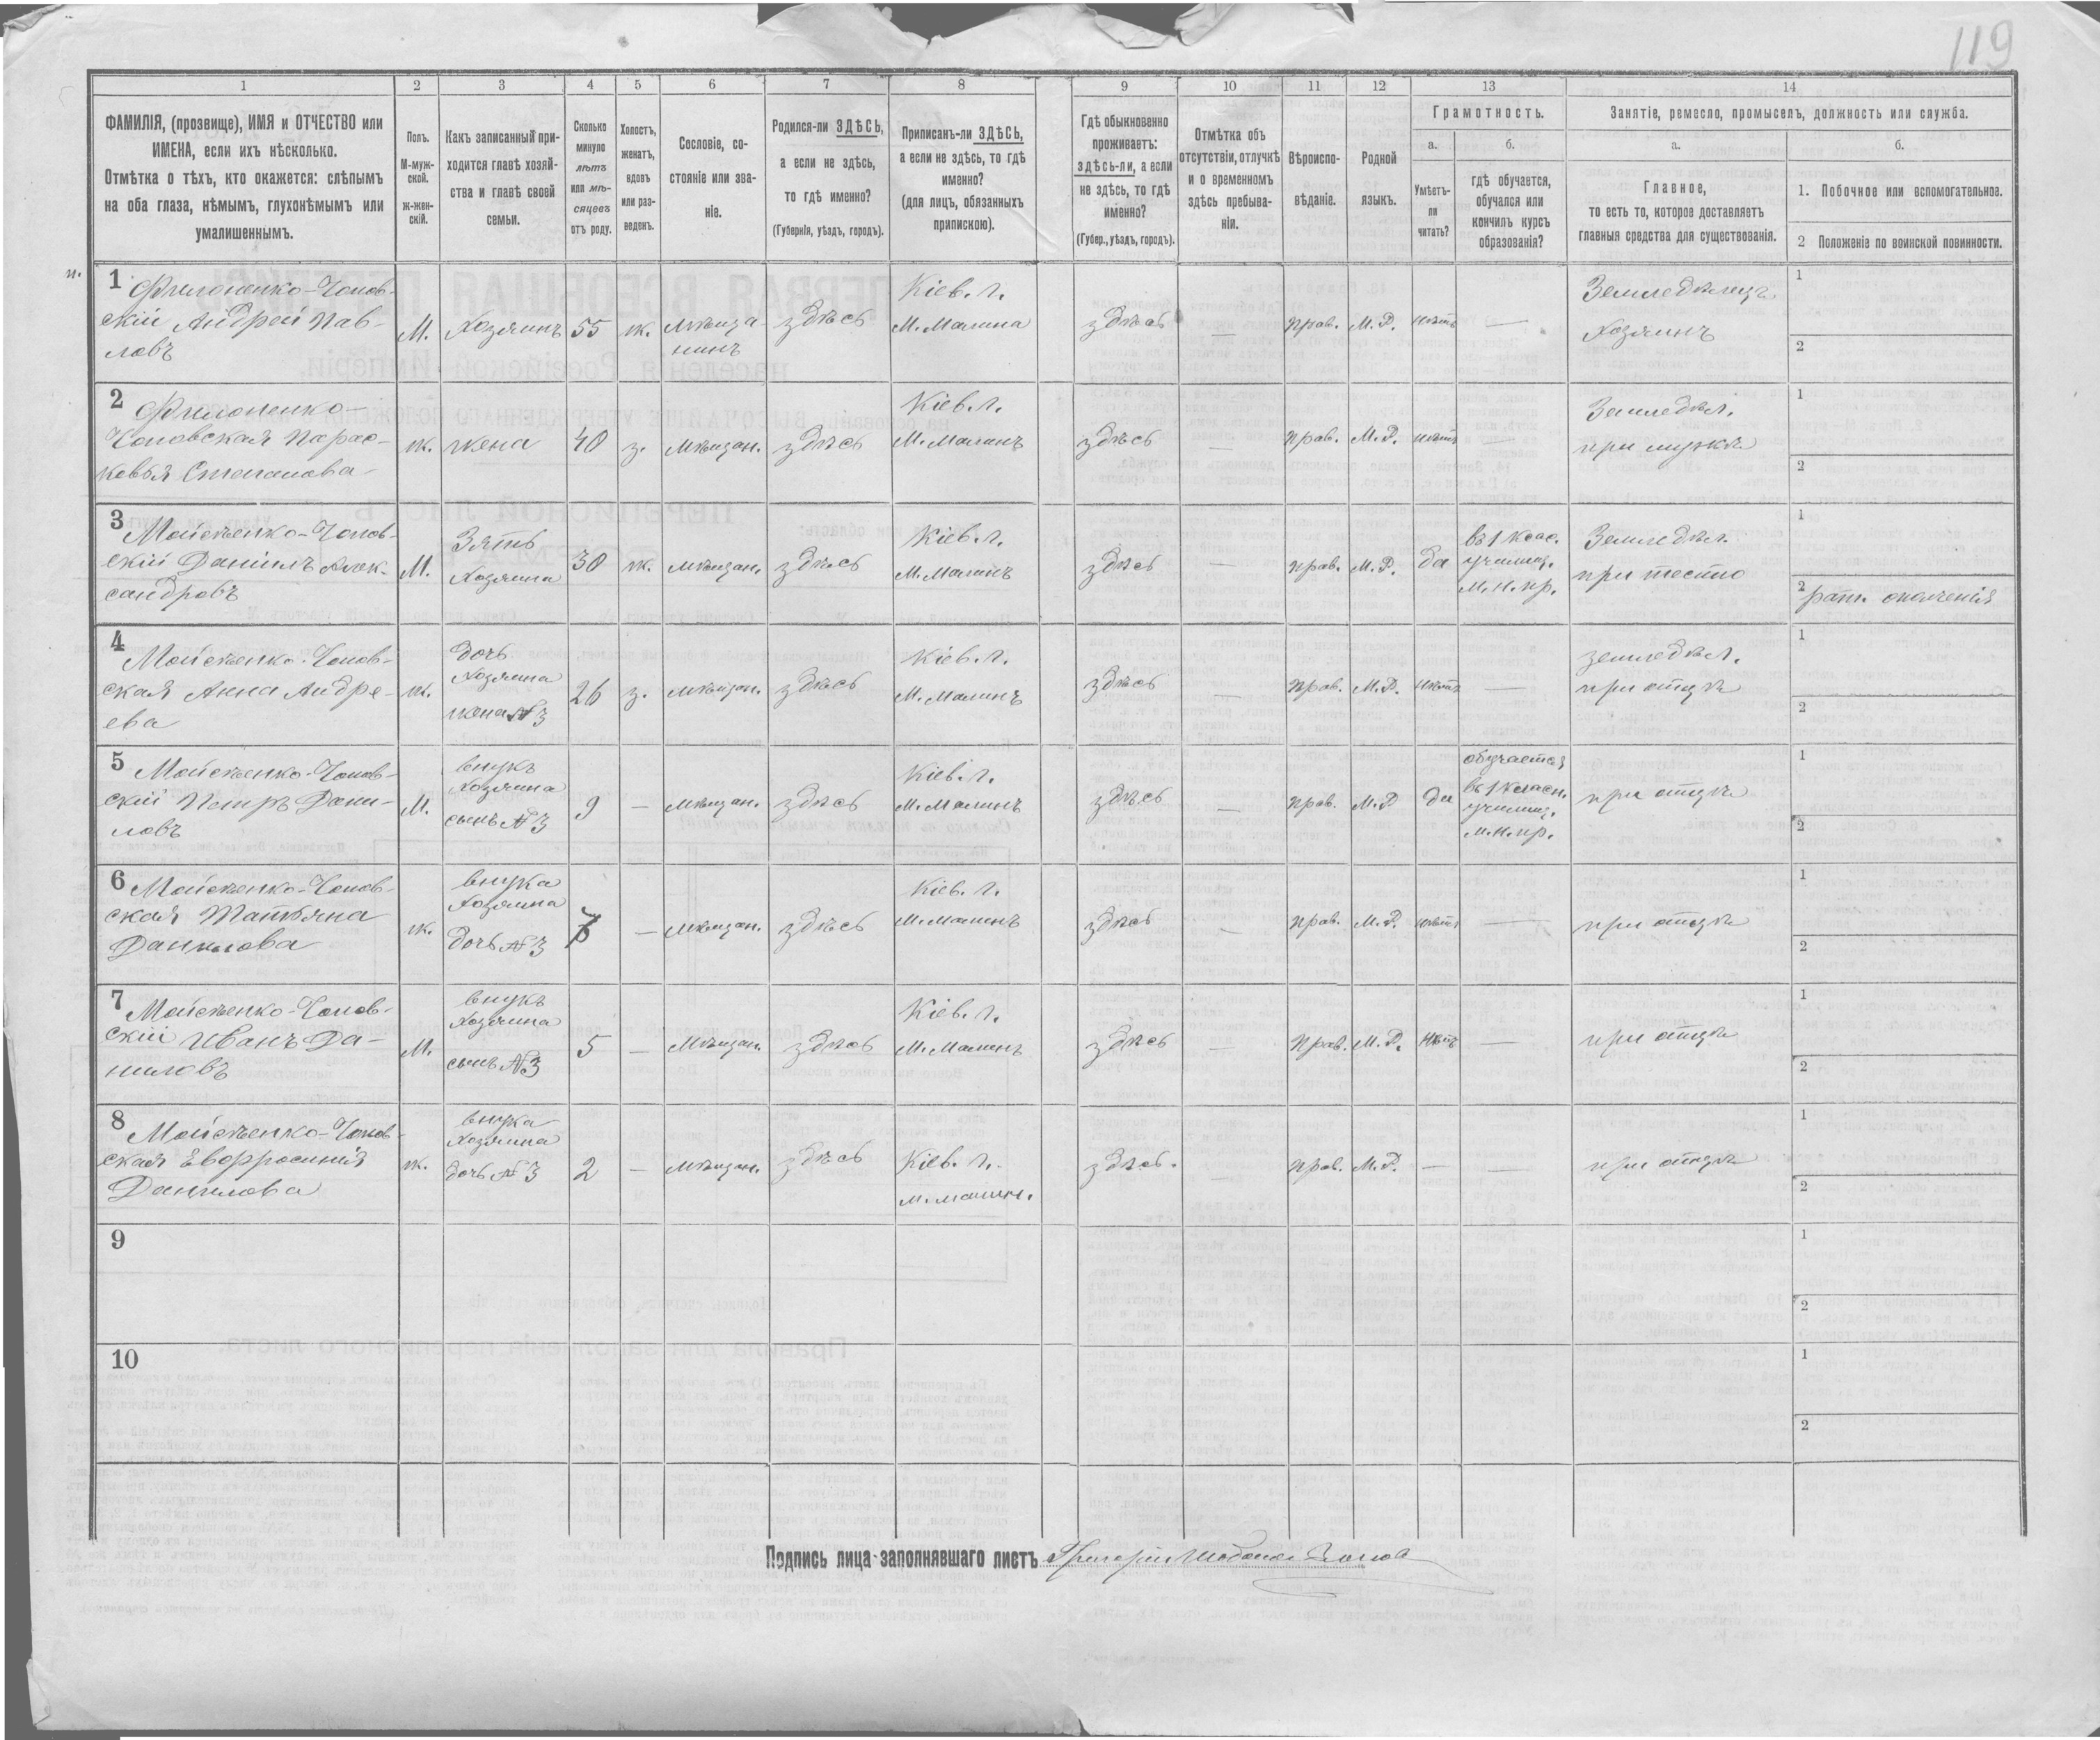 119
1
2
3
4
5
6
7
8
9
10
11
12
13
14
ФАМИЛІЯ, (прозвище), ИМЯ и ОТЧЕСТВО или
ИМЕНА, если ихъ нѣсколько.
Отмѣтка о тѣхъ, кто окажется: слѣпымъ
на оба глаза, нѣмымъ, глухонѣмымъ или
умалишеннымъ.
Полъ.
М-муж-
ской.
ж-жен-
скій.
Какъ записанный при-
ходится главѣ хозяй-
ства и главѣ своей
семьи.
Сколько
минуло
лѣтъ
или мѣ-
сяцевъ
отъ роду.
Холостъ,
женатъ,
вдовъ
или раз-
веденъ.
Сословіе, со-
стояніе или зва-
ніе.
Родился-ли ЗДѢСЬ,
а если не здѣсь,
то гдѣ именно?
(Губернія, уѣздъ, городъ).
Приписанъ-ли ЗДѢСЬ,
а если не здѣсь, то гдѣ
именно?
(для лицъ, обязанныхъ
припискою).
Гдѣ обыкновенно
проживаетъ:
здѣсь-ли, а если
не здѣсь, то гдѣ
именно?
(Губер., уѣздъ, городъ).
Отмѣтка объ
отсутствіи, отлучкѣ
и о временномъ
здѣсь пребыва-
ніи.
Вѣроиспо-
вѣданіе.
Родной
языкъ.
Грамотность.
а.
Умѣетъ-
ли
читать?
б.
гдѣ обучается,
обучался или
кончилъ курсъ
образованія?
Занятіе, ремесло, промыселъ, должность или служба.
а.
Главное,
то есть то, которое доставляетъ
главныя средства для существованія.
б.
1. Побочное или вспомогательное.
2 Положеніе по воинской повинности.
1
Филоненко-Чопов-
скій Андрей Пав-
ловъ
М.
Хозяинъ
55
ж.
Мѣща
нинъ
здѣсь
Кіев. г.
М. Малина
здѣсь
—
прав.
М. Р.
нѣтъ
—
Земледѣлецъ
Хозяинъ
1
2
2
Филоненко-
Чоповская Парас-
ковья Степанова
ж.
жена
40
з.
Мѣщан.
здѣсь
Кіев. г.
М. Малинъ
здѣсь
—
прав.
М. Р.
нѣтъ
—
Земледѣл.
при мужѣ
1
2
3
Мойсѣенко-Чопов-
скій Даніилъ Алек-
сандровъ
М.
Зять
Хозяина
30
ж.
мѣщан.
здѣсь
Кіев. г.
М. Малинъ
здѣсь
—
прав.
М. Р.
да
въ 1 клас.
училищ.
м. н. пр.
Земледѣл.
при тестю
1
2 рат. ополченія
4
Мойсѣенко-Чопов-
ская Анна Андре-
ева
ж.
дочь
Хозяина
жена № 3
26
з.
мѣщан.
здѣсь
Кіев. г.
М. Малинъ
здѣсь
—
прав.
М. Р.
нѣтъ
—
земледѣл.
при отцѣ
1
2
5
Мойсѣенко-Чопов-
скій Петръ Дани-
ловъ
М.
внукъ
Хозяина
сынъ № 3
9
—
мѣщан.
здѣсь
Кіев. г.
М. Малинъ
здѣсь
—
прав.
М. Р
да
обучается
въ 1 класн.
училищ.
м. н. пр.
при отцѣ
1
2
6
Мойсѣенко-Чопов-
ская Татьяна
Данилова
ж.
внука
Хозяина
дочь № 3
7
—
мѣщан.
здѣсь
Кіев. г.
М. Малинъ
здѣсь
—
прав.
М. Р.
нѣтъ
—
при отцѣ
1
2
7
Мойсѣенко-Чопов-
скій Иванъ Да-
ниловъ
М.
внукъ
Хозяина
сынъ № 3
5
—
Мѣщан.
здѣсь
Кіев. г.
М. Малинъ
здѣсь
—
прав.
М. Р.
нѣтъ
—
при отцѣ
1
2
8
Мойсѣенко-Чопов-
ская Евфросинія
Данилова
ж.
внука
Хозяина
дочь № 3
2
—
мѣщан.
здѣсь
Кіев. г.
м. малин.
здѣсь.
—
прав.
М. Р.
—
—
при отцѣ
1
2
9
1
2
10
1
2
Подпись лица заполнявшаго листъ Григорій